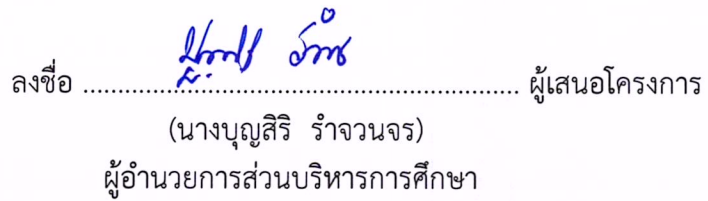 ลงชื่อ ............................................................... ผู้เสนอโครงการ
(นางบุญสิริ รำจวนจร)
ผู้อำนวยการส่วนบริหารการศึกษา